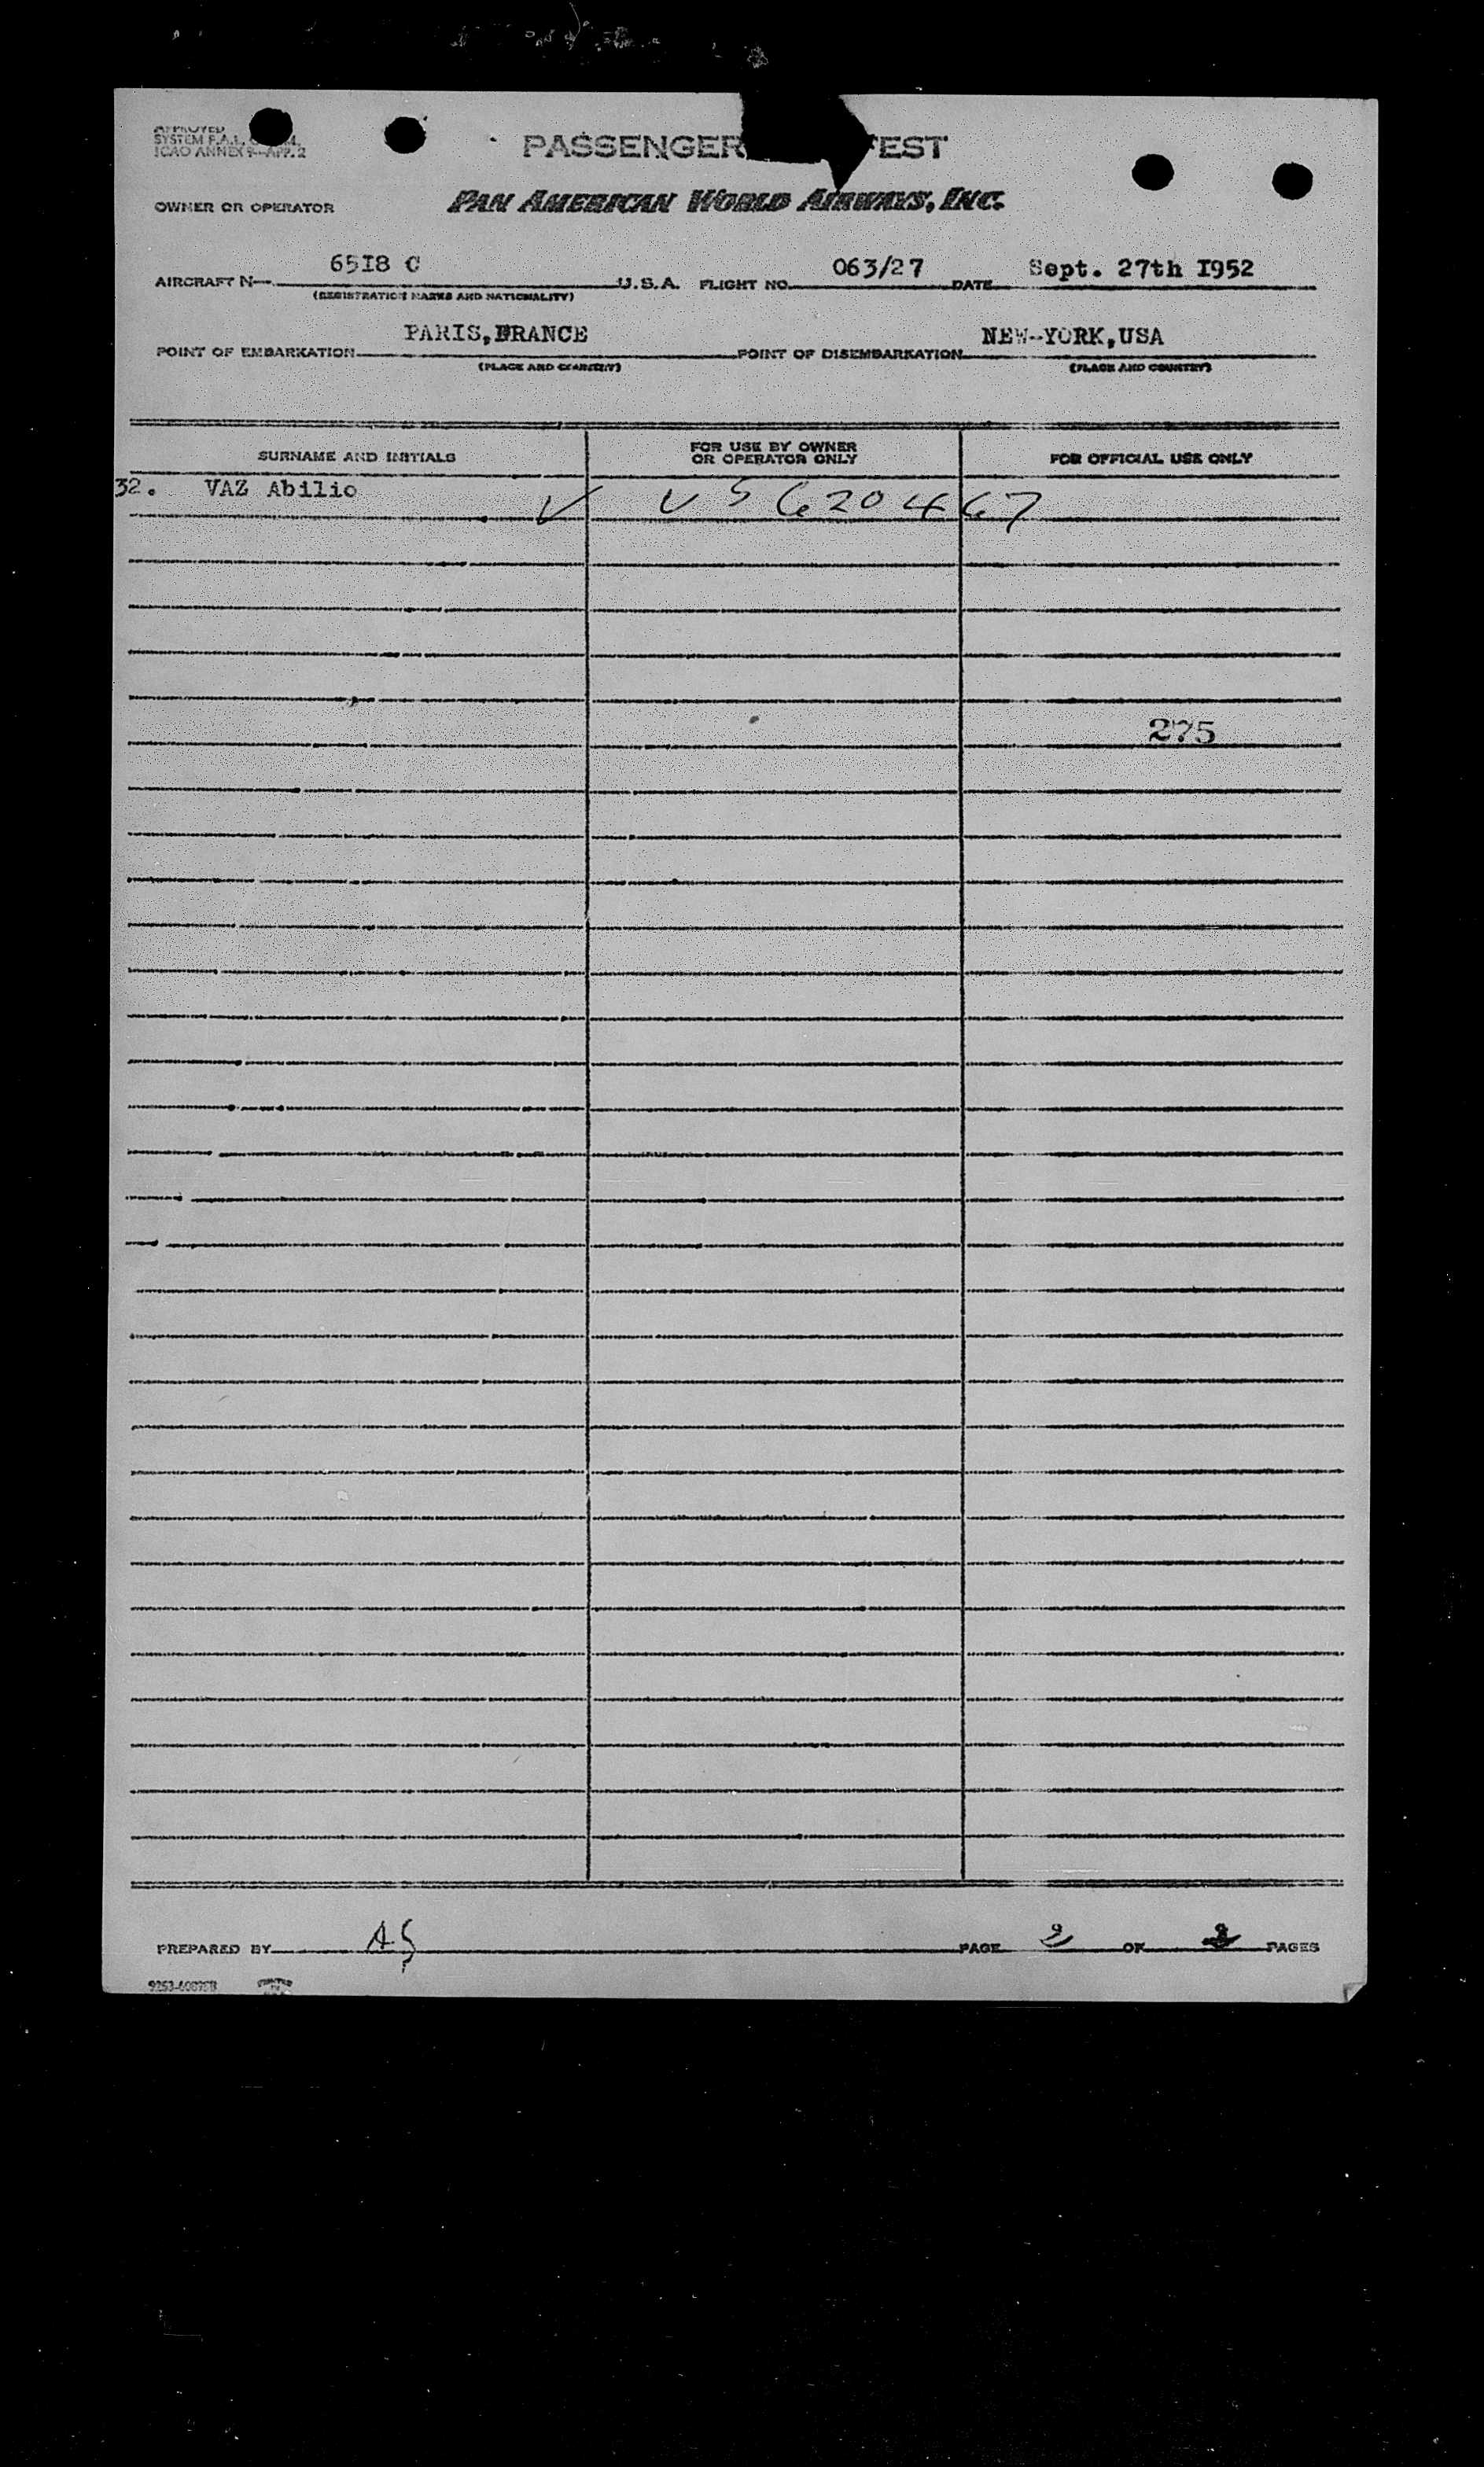 APPROVED
SYSTEM F.A.L.
ICAO ANNEX 9—APP. 2
PASSENGER
FEST
OWNER OR OPERATOR PAN AMERICAN WORLD AIRWAYS, INC.
AIRCRAFT N— 65I8 C U.S.A. FLIGHT NO. 063/27 DATE Sept. 27th I952
(REGISTRATION MARKS AND NATIONALITY)
POINT OF EMBARKATION PARIS,FRANCE POINT OF DISEMBARKATION NEW-YORK,USA
(PLACE AND COUNTRY) (PLACE AND COUNTRY)
SURNAME AND INITIALS
FOR USE BY OWNER
OR OPERATOR ONLY
FOR OFFICIAL USE ONLY
32. VAZ Abilio V V5620467
275
PREPARED BY AS PAGE 2 OF 2 PAGES